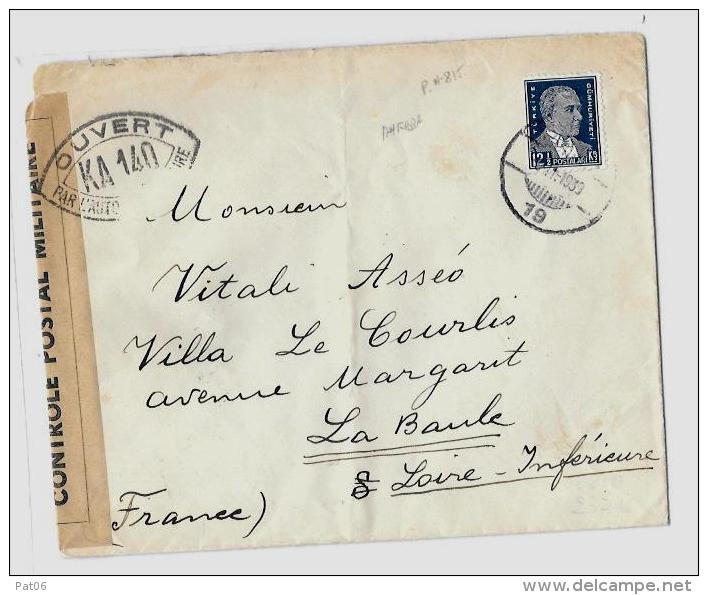 P.N. 815
OUVERT
KA 140
PAR L'AUTO
CONTRÔLE POSTAL MILITAIRE
TÜRKİYE CÜMHURİYETİ
12 1/2 POSTALARI KŞ
1939
19
Monsieur
Vitali Asséo
Villa Le Courlis
avenue Margarit
La Baule
Loire-Inférieure
(France)
Pat06
delcampe.net